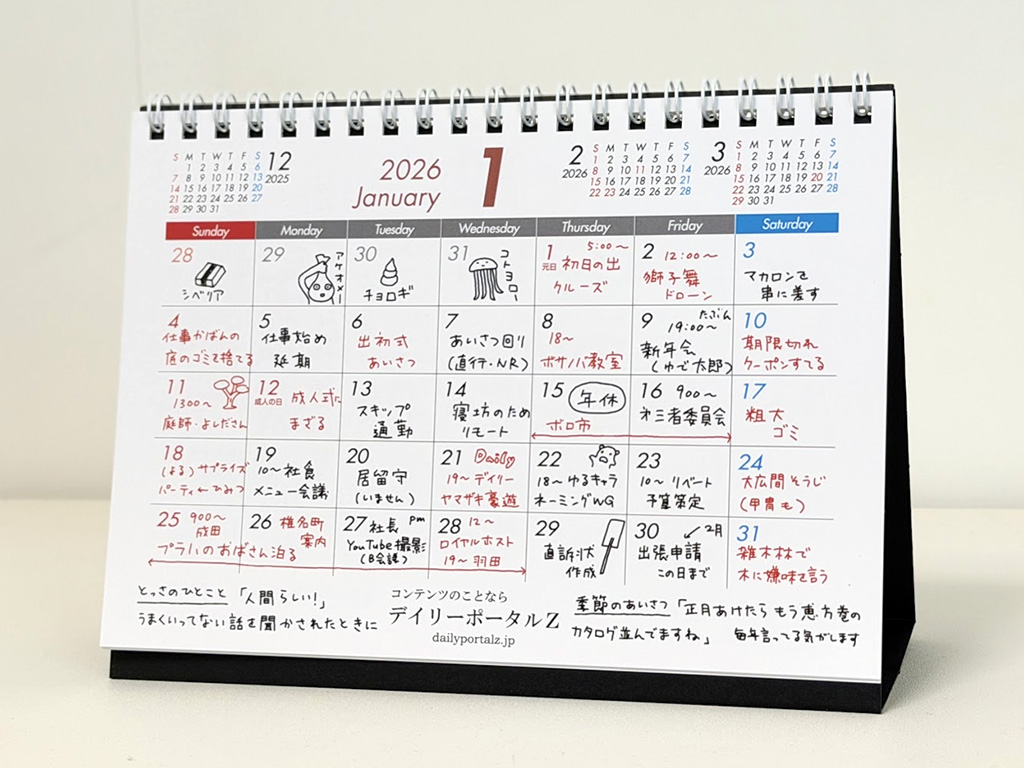 S M T W T F S
1 2 3 4 5 6
7 8 9 10 11 12 13
14 15 16 17 18 19 20
21 22 23 24 25 26 27
28 29 30 31
12
2025
2026
January
1
2
2026
S M T W T F S
1 2 3 4 5 6 7
8 9 10 11 12 13 14
15 16 17 18 19 20 21
22 23 24 25 26 27 28
3
2026
S M T W T F S
1 2 3 4 5 6 7
8 9 10 11 12 13 14
15 16 17 18 19 20 21
22 23 24 25 26 27 28
29 30 31
Sunday Monday Tuesday Wednesday Thursday Friday Saturday
28
シベリア
29
アケオメー
30
チョロギ
31
コトヨロー
1 5:00〜
元日 初日の出
クルーズ
2 12:00〜
獅子舞
ドローン
3
マカロンを
串に差す
4
仕事かばんの
底のゴミを捨てる
5
仕事始め
延期
6
出初式
あいさつ
7
あいさつ回り
(直行・NR)
8
18〜
ボサノバ教室
9 たぶん
19:00〜
新年会
(ゆで太郎)
10
期限切れ
クーポンすてる
11
1300〜
庭師・よしださん
12
成人の日 成人式に
まざる
13
スキップ
通勤
14
寝坊のため
リモート
15 年休
ボロ市
16 900〜
第三者委員会
17
粗大
ゴミ
18
(よる)サプライズ
パーティ←ひみつ
19
10〜社食
メニュー会議
20
居留守
(いません)
21 Daily
19〜デイリー
ヤマザキ豪遊
22
18〜ゆるキャラ
ネーミングWG
23
10〜リベート
予算策定
24
大広間そうじ
(甲冑も)
25 900〜
成田
プラハのおばさん泊る
26 椎名町
案内
27 社長 pm
YouTube撮影
(B会議)
28 12〜
ロイヤルホスト
19〜羽田
29
直訴状
作成
30 2月
出張申請
この日まで
31
雑木林で
木に嫌味を言う
とっさのひとこと 「人間らしい!」
うまくいってない話を聞かされたときに
コンテンツのことなら
デイリーポータルZ
dailyportalz.jp
季節のあいさつ 「正月あけたらもう恵方巻の
カタログ並んでますね」 毎年言ってる気がします